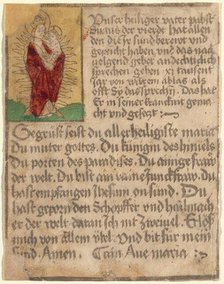 Unser heiliger vater pabst
Sixtus der vierde hat allen
den die sy sind
gerecht haben und das nach
gelengd gebet andechtiglich
sprechen geben xj tausent
jar von waren ablas als
offt Sy das sprechen. Das hat
Er in seiner kranckheit gemacht
und gesetzt :~
Gegrust seist du allerheiligiste maria
Du muter gottes. Du künigin des himels
Du porten des paradises. Du
der welt. Du bist ain raine Junckfraw. Du
hast empfangen Jhesum on sund. Du
hast geporn den Schopffer und hailmach
er der welt daran ich nit zweivel. Erloß
mich von allem ubel. Und bit fur mein
Sünd. Amen. Ave maria :~